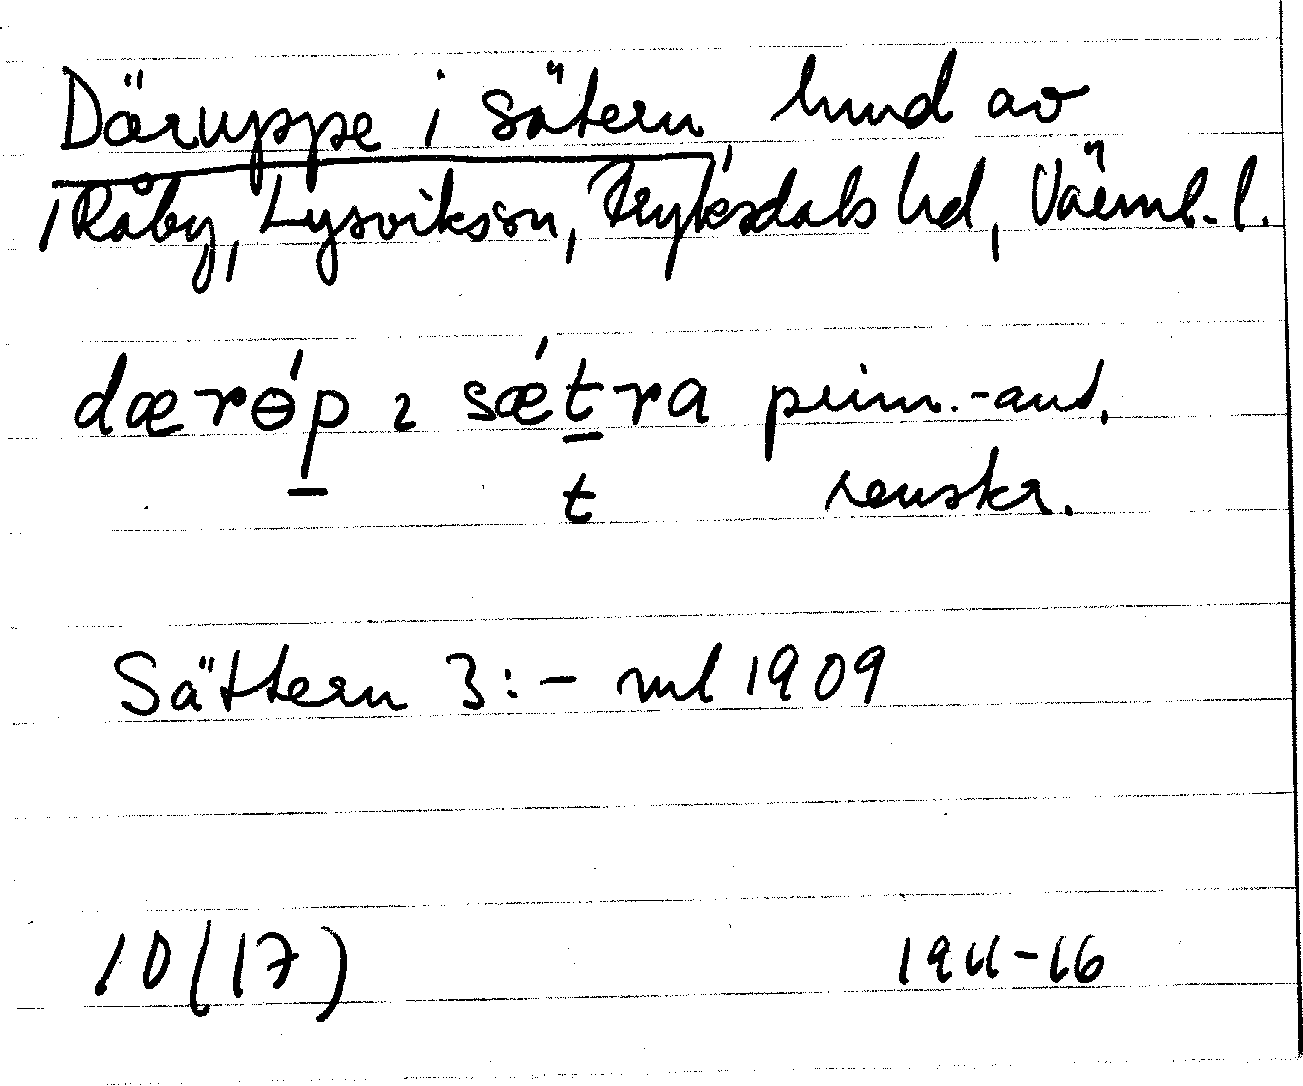 Däruppe i sätern hmd av
1 Råby, Lysvikssn, Fryksdals hd, Värml. l.
dærɵ́p ɩ sǽtra prim.-ant.
t renskr.
Sättern 3:- ml 1909
10(17) 1911-16